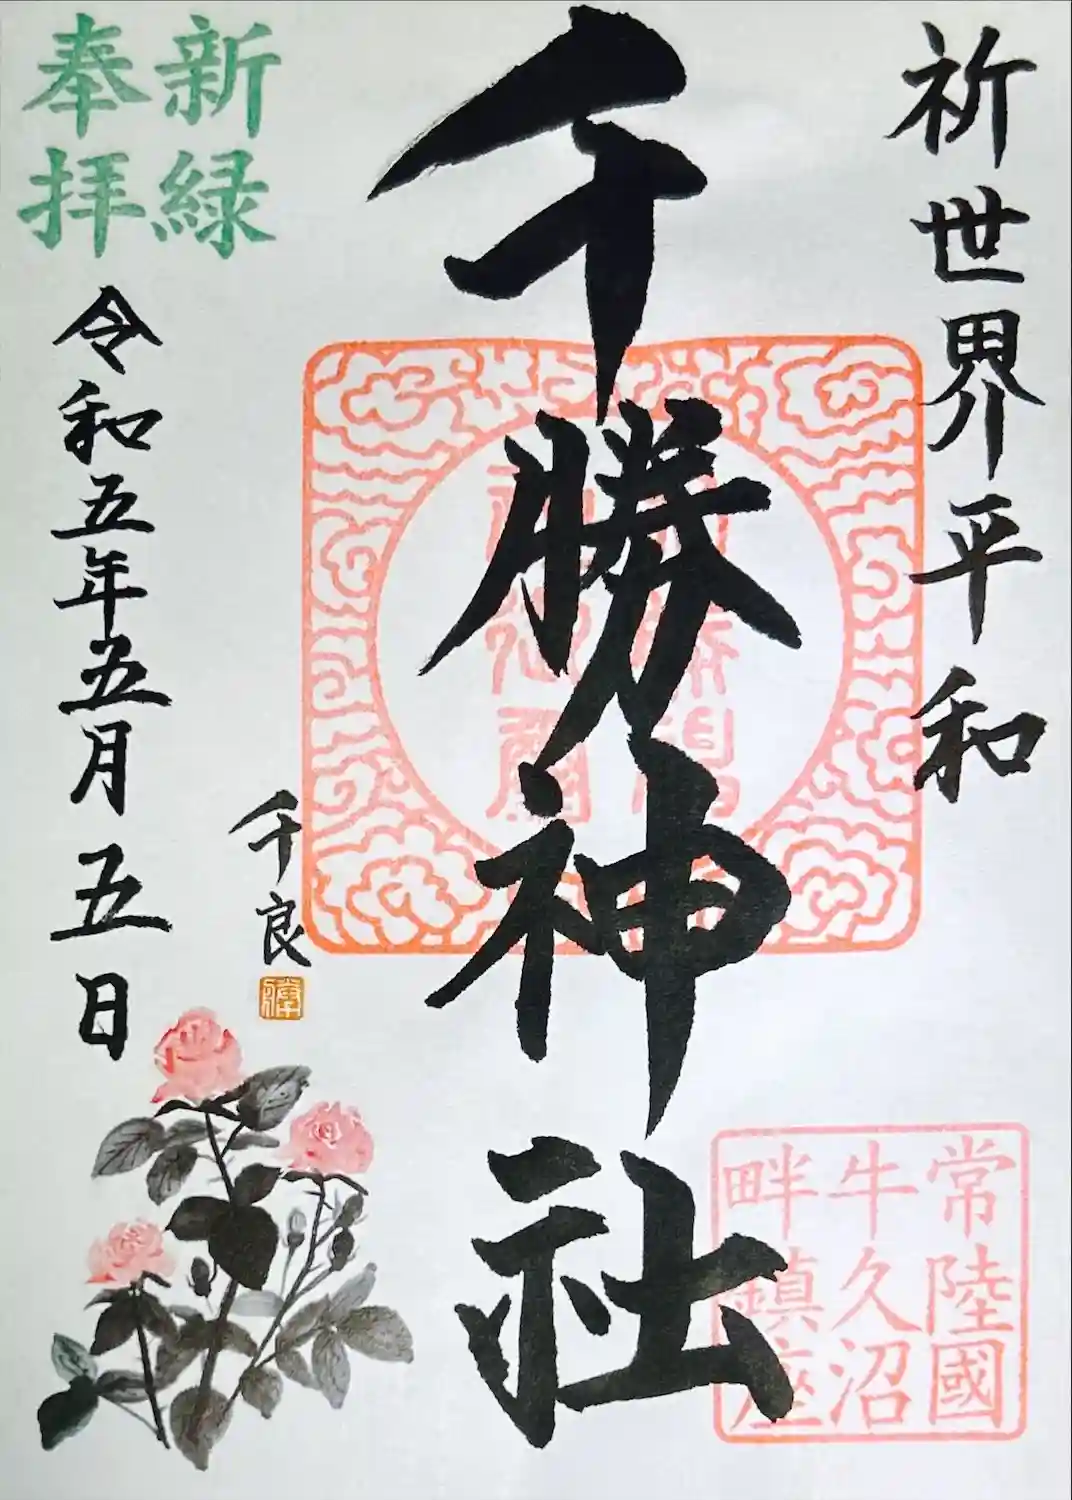 祈世界平和
千勝神社
常陸國
牛久沼
畔鎮座
千良
新緑
奉拝
令和五年五月五日